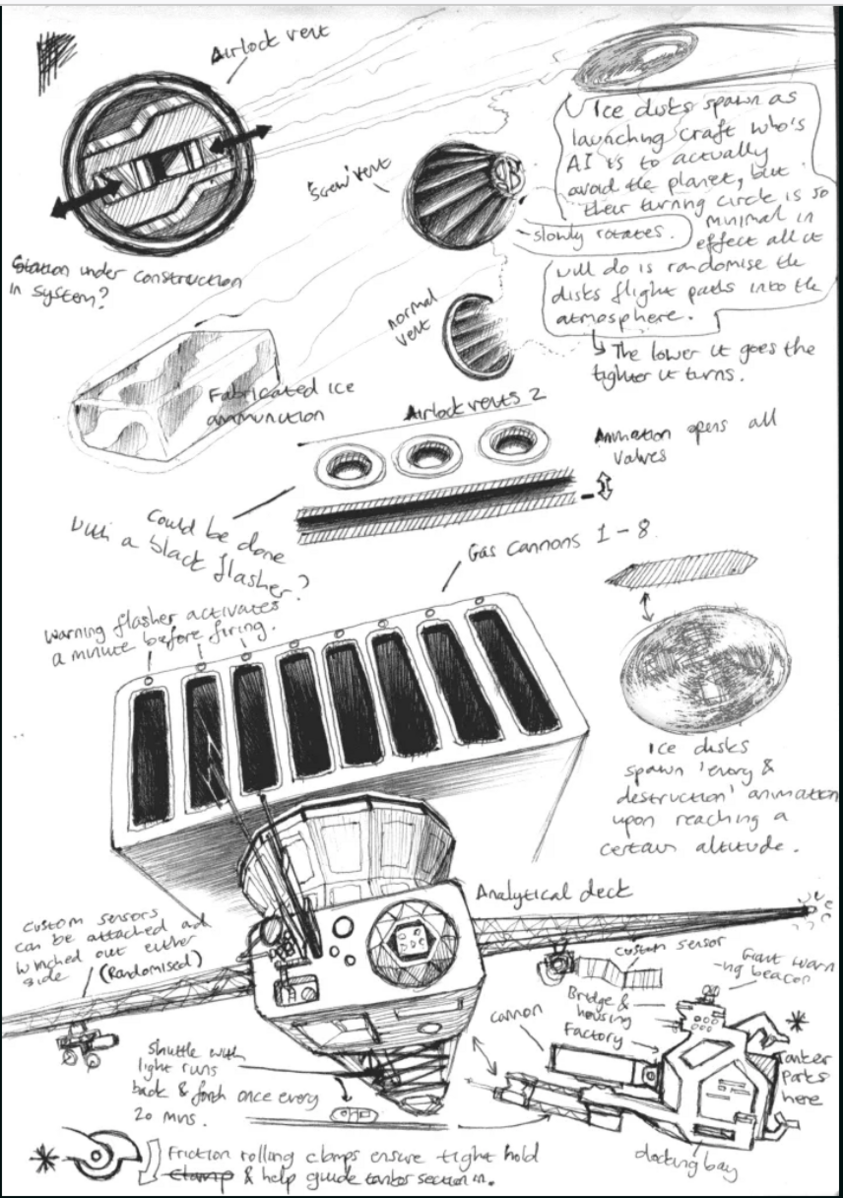 Airlock vent
Ice disks spawn as
launching craft who's
AI is to actually
avoid the planet, but
their turning circle is so
minimal in
effect all it
will do is randomise the
disks flight paths into the
atmosphere.
↳ The lower it goes the
tighter it turns.
'Screw' vent
slowly rotates.
Station under construction
in system?
normal
vent
Fabricated ice
ammunition
Airlock vents 2
Animation opens all
valves
Could be done
with a black flasher?
Gas cannons 1-8
Warning flasher activates
a minute before firing.
Ice disks
spawn 'every &
destruction' animation
upon reaching a
certain altitude.
Analytical deck
Custom sensors
can be attached and
winched out either
side (Randomised)
custom sensor
Giant warn
-ing beacon
Bridge &
housing
Factory
cannon
Tanker
parts
here
Shuttle with
light runs
back & forth once every
20 mins.
docking bay
* Friction rolling clamps ensure tight hold
Clamp & help guide tanker section in.